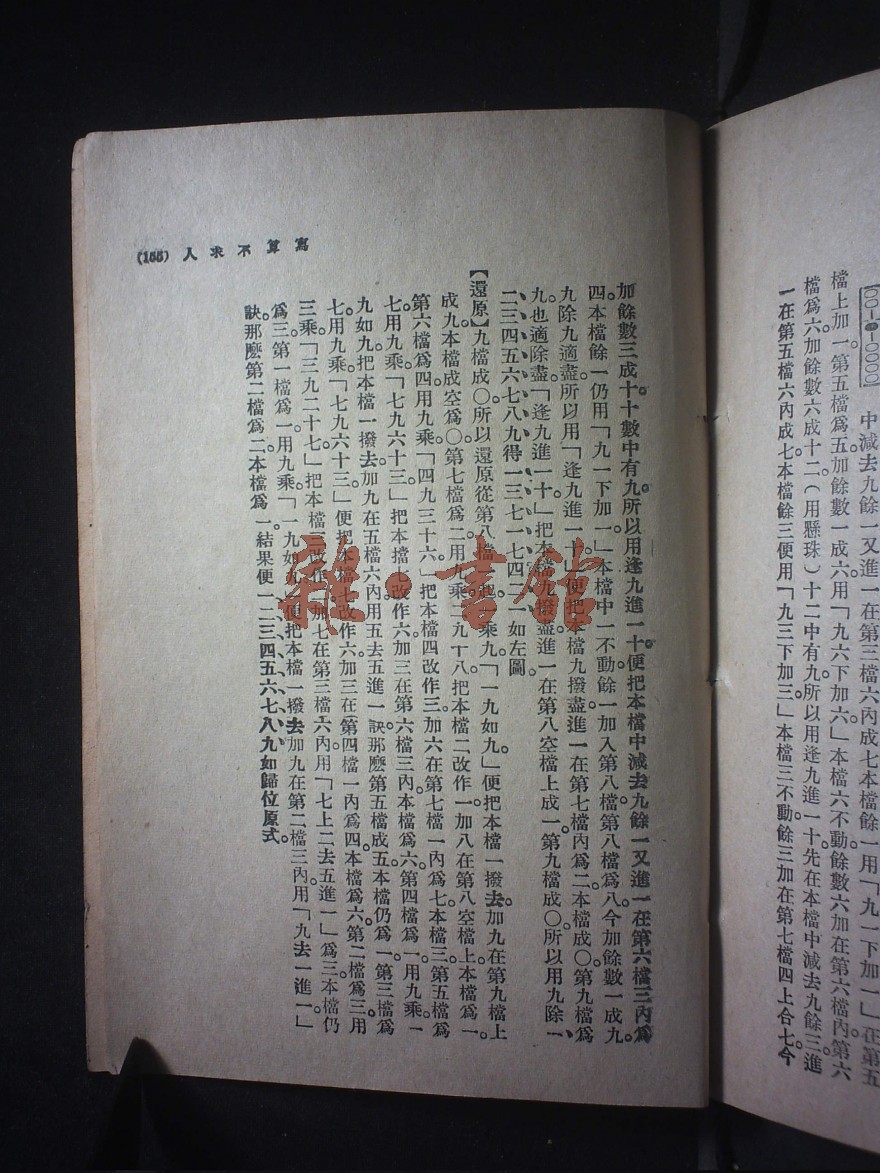 檔上加一。第五檔爲五加餘數一成六用「九六下加六」本檔六不動餘數六加在第六檔內。第六
檔爲六加餘數六成十二（用懸珠）十二中有九。所以用逢九進一十先在本檔中減去九餘三進
一在第五檔六內成七。本檔餘三便用「九三下加三。」本檔三不動餘三加在第七檔四上合七。今
中減去九餘一又進一在第三檔六內成七本檔餘一用「九一下加一」在第五
寫算不求人 (155)
加餘數三成十。十數中有九。所以用逢九進一十。便把本檔中減去九餘一又進一在第六檔三內爲
四。本檔餘一仍用「九一下加一」本檔中一不動餘一加入第八檔。第八檔爲八。今加餘數一成九。
九除九適盡。所以用「逢九進一十」便把本檔九撥盡進一在第七檔內爲二。本檔成〇。第九檔爲
九也適除盡。「逢九進一十」把本檔九撥盡進一在第八空檔上成一。第九檔成〇。所以用九除一、
二、三、四、五、六、七、八、九得一三七一七四二一如左圖
【還原】九檔成〇。所以還原從第八檔一起。一乘九。「一九如九」便把本檔一撥去。加九在第九檔上
成九。本檔成空爲〇。第七檔爲二用九乘。二九十八把本檔二改作一加八在第八空檔上。本檔爲一。
第六檔爲四用九乘。「四九三十六」把本檔四改作三加六在第七檔一內爲七。本檔三。第五檔爲
七。用九乘。「七九六十三」把本擋七改作六加三在第六檔三內。本檔爲六。第四檔爲一用九乘。一
九如九。把本檔一撥去加九在五檔六內用五去五進一訣那麼第五檔成五。本檔仍爲一。第三檔爲
七。用九乘。「七九六十三」便把本檔七改作六加三在第四檔一內爲四。本檔爲六。第二檔爲三。用
三乘。「三九二十七」把本檔三改作二加七在第三檔六內用「七上二去五進一」爲三。本檔仍
爲三。第一檔爲一。用九乘。「一九如九」便把本檔一撥去加九在第二檔三內用「九去一進一」
訣。那麼第二檔爲二。本檔爲一。結果便一、二、三、四、五、六、七、八、九如歸位原式。
雜·書館